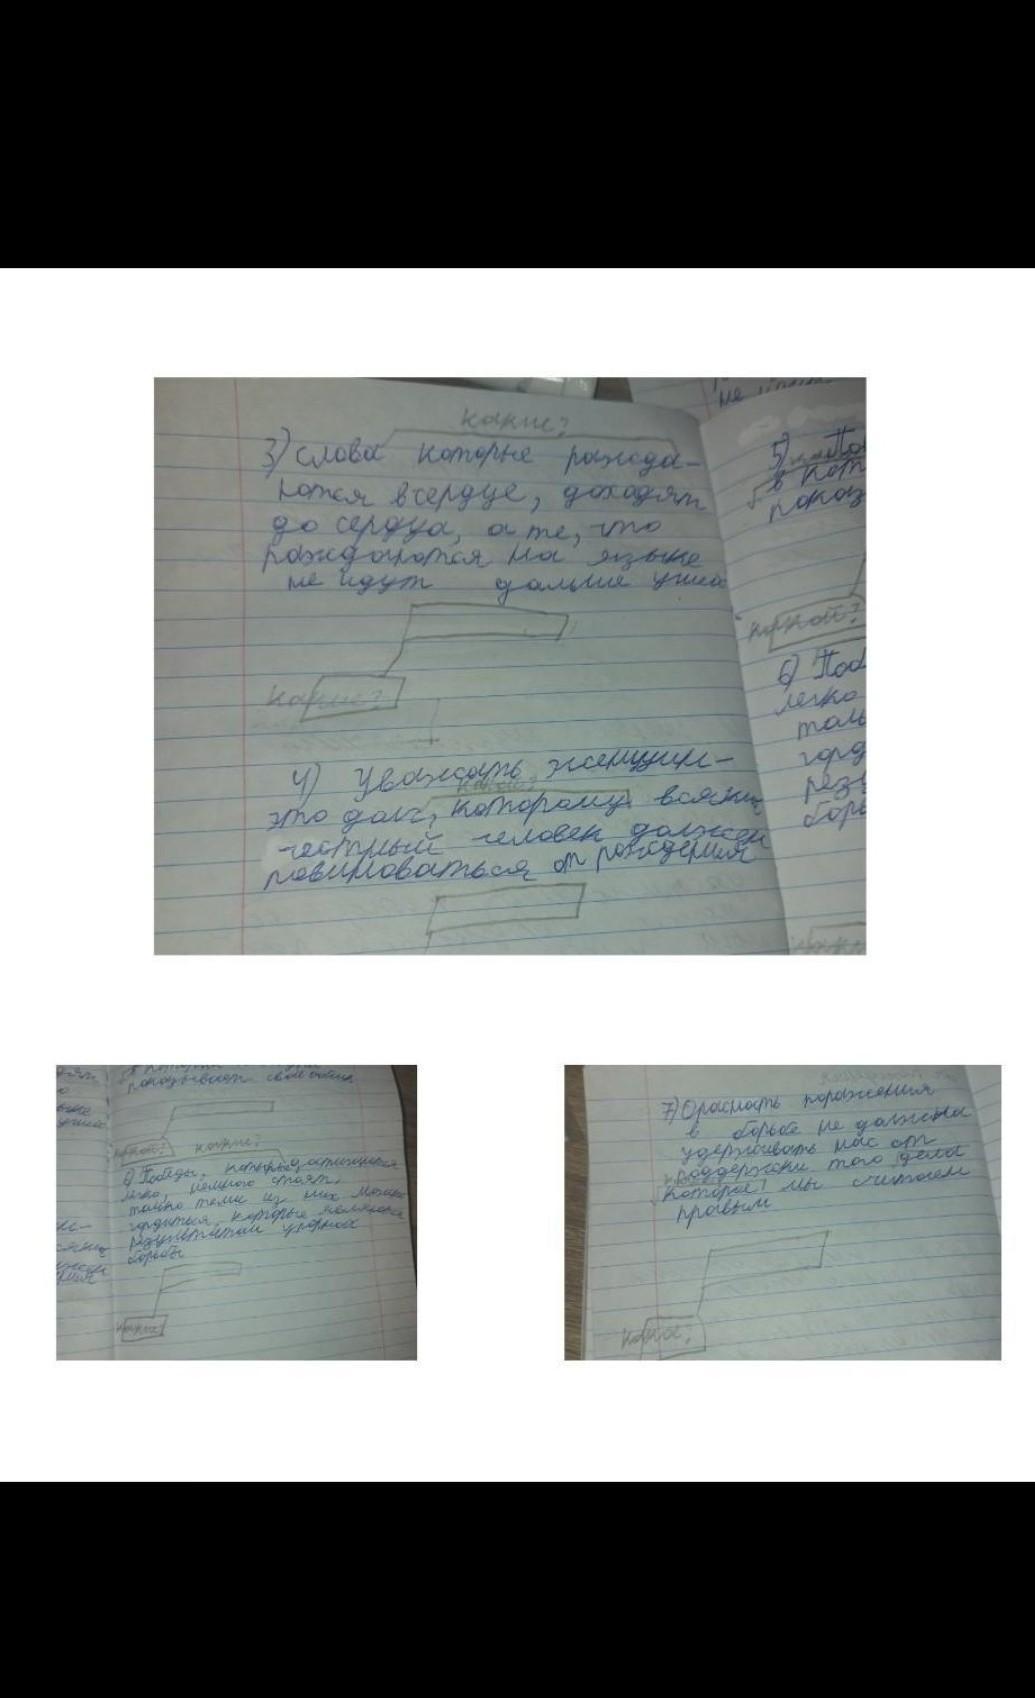 какие?
3) слова которые рожда-
ются в сердце, доходят
до сердца, а те, что
рождаются на языке
не идут дальше ушей
какие?
4) Уважать женщин-
какой?
это долг, которому всякий
честный человек должен
повиноваться от рождения
не
5)
в кот
показ
какой?
6) Поб
легко
толь
горд
рез
борь
показывает свои
какой? какие?
6) Победы, которые достигаются
легко, немного стоят,
только теми из них можно
гордиться, которые являются
результатом упорной
борьбы
какие?
7) Опасность поражения
в борьбе не должна
удерживать нас от
поддержки того дела
которое мы считаем
правым
какое?